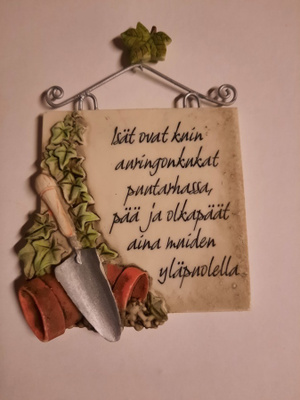 Isät ovat kuin
auringonkukat
puutarhassa,
pää ja olkapäät
aina muiden
yläpuolella